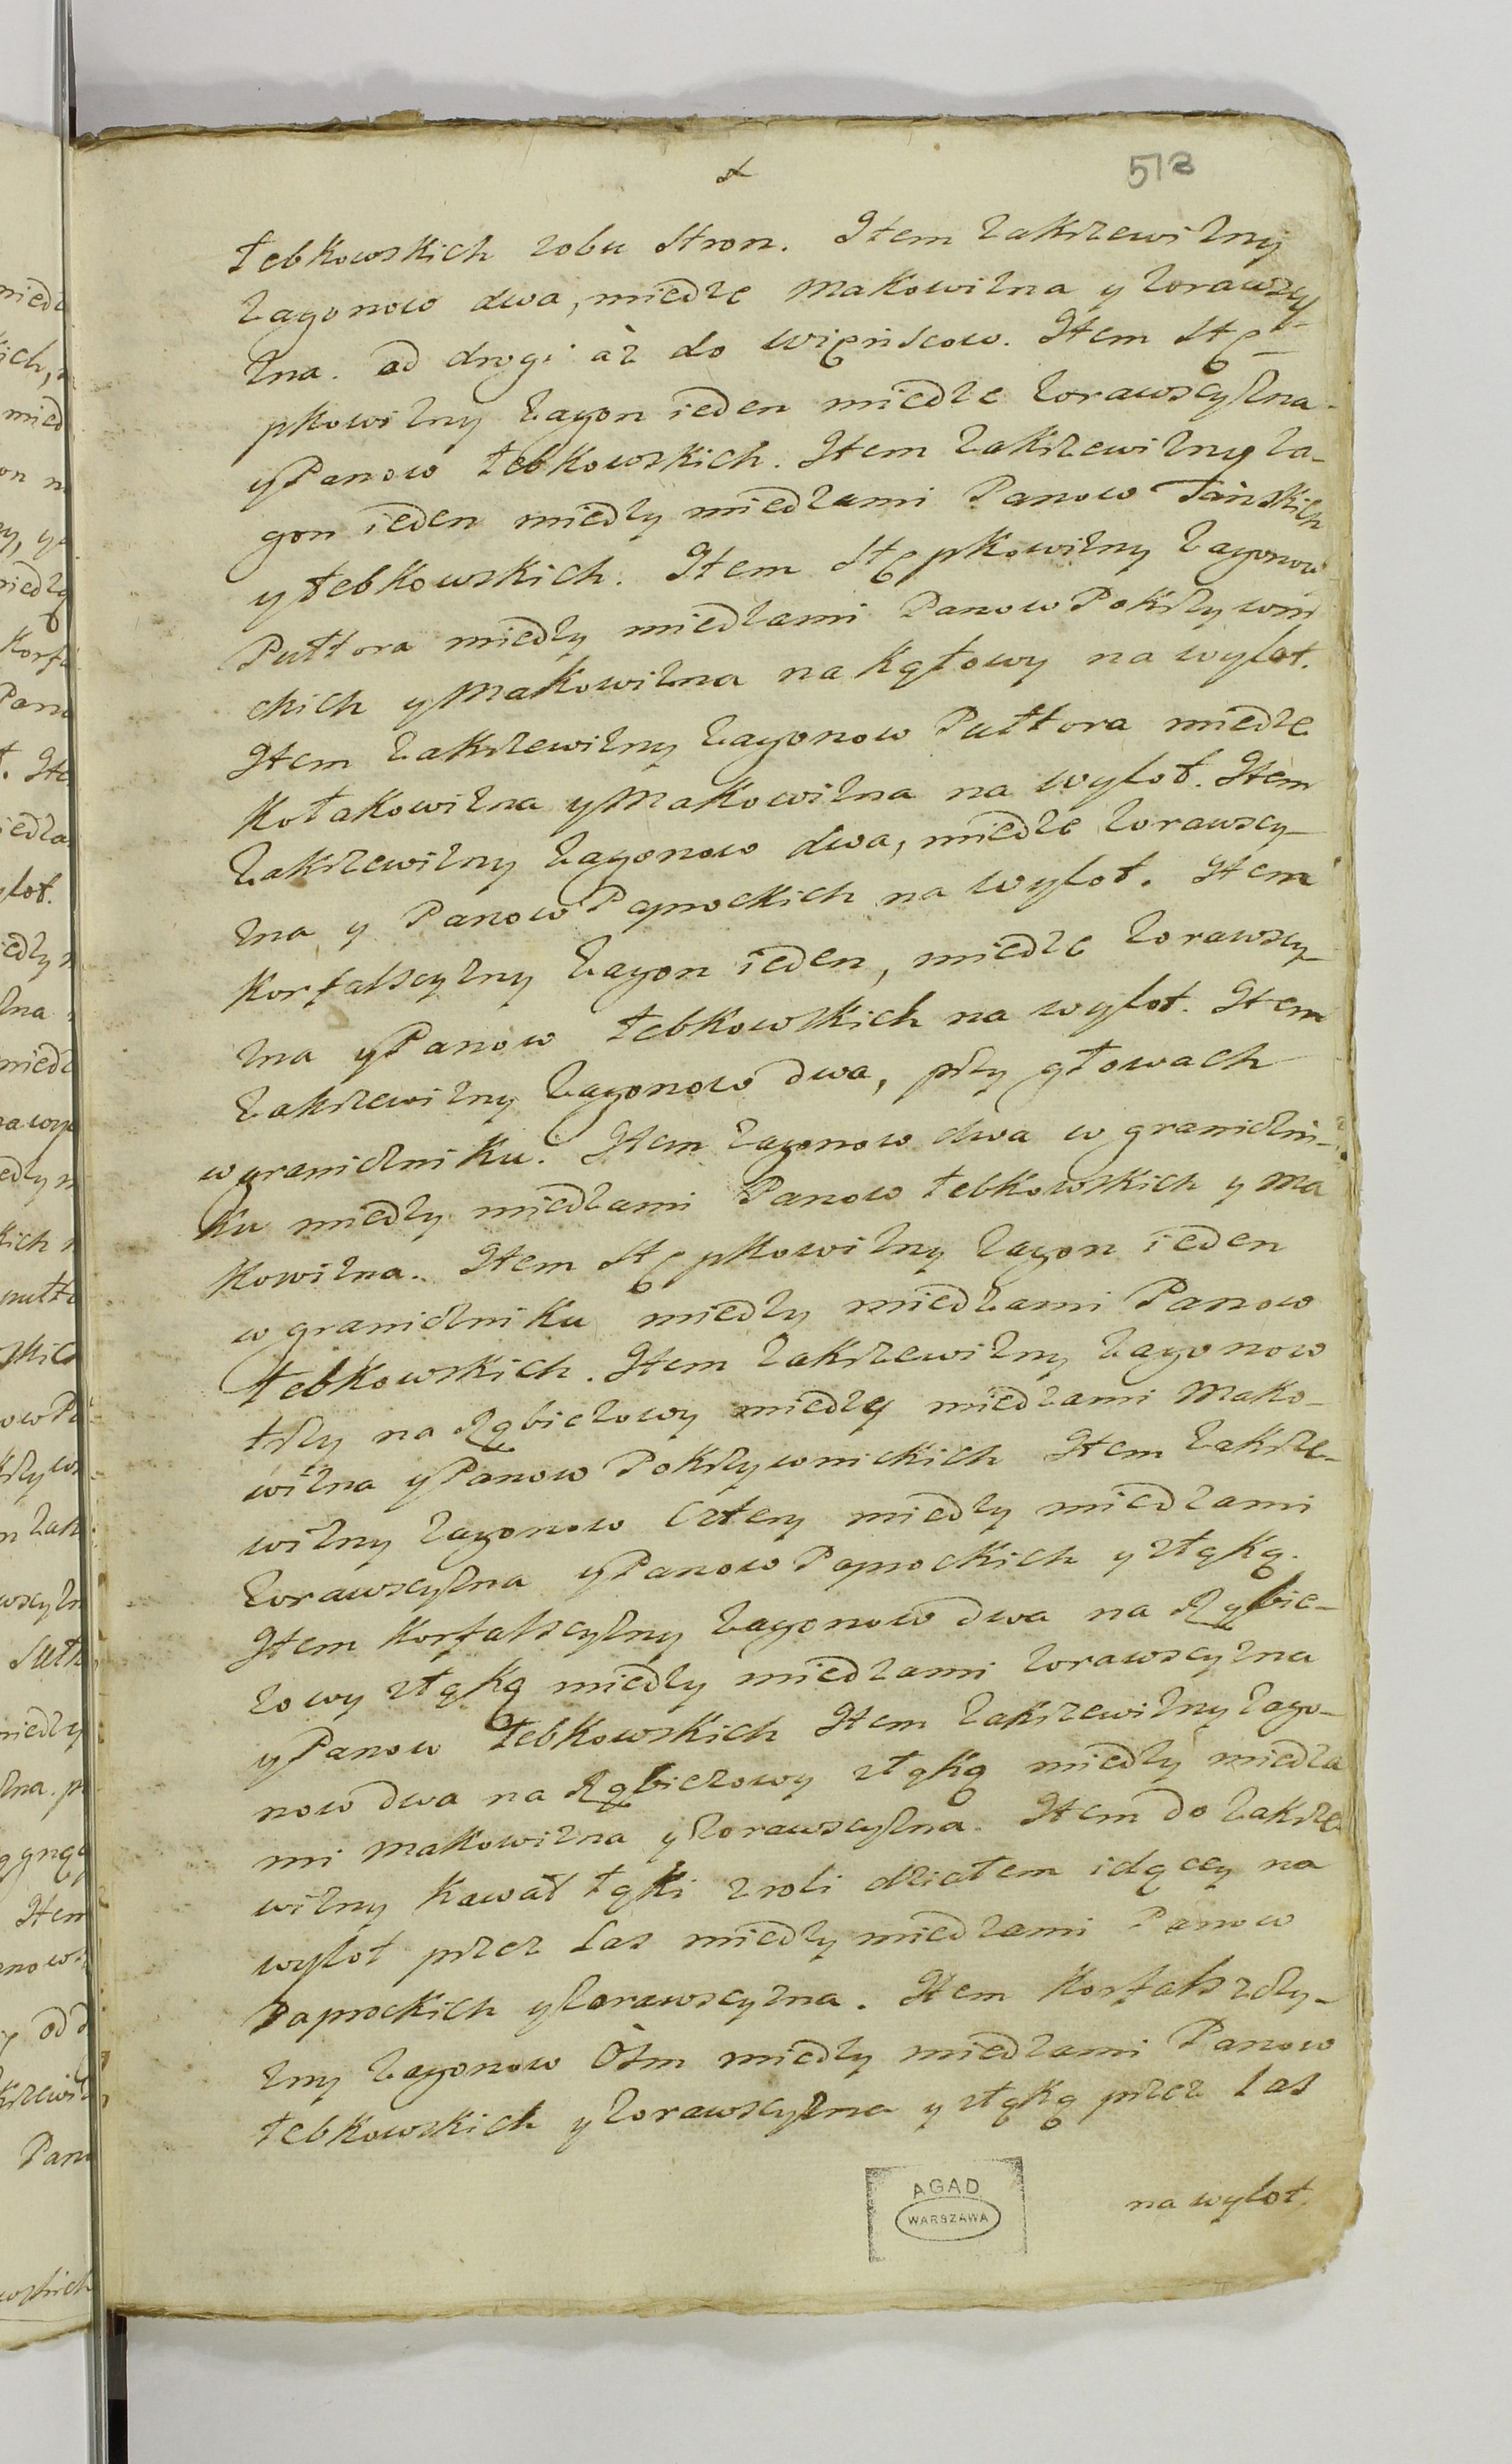 513
Łebkowskich zobu stron. Item Zakrzewizny
Zagonow dwa, miedze Makowizna y Zorawszczy-
zna. od drogi aż do więńscow. Item Stę-
pkowizny Zagon ieden miedze Zorawscyzna
y Panow Łebkowskich. Item Zakrzewizny za-
gon ieden miedzy miedzami Panow Tańskich
y Łebkowskich. Item Stępkowizny Zagonow
Pułtora miedzy miedzami Panow Pokrzywni
ckich y Makowizna na Kątowy na wylot.
Item Zakrzewizny Zagonow Pułtora miedze
Kołakowizna y Makowizna na wylot. Item
Zakrzewizny Zagonow dwa, miedze Zorawscy-
zna y Panow Paprockich na wylot. Item
Korfatscyzny Zagon ieden, miedze Zorawscy-
zna y Panow Łebkowskich na wylot. Item
Zakrzewizny Zagonow dwa, przy głowach
w graniczniku. Item Zagonow dwa w graniczni-
ku miedzy miedzami Panow Łebkowskich y Ma
kowizna. Item Stępkowizny Zagon ieden
w graniczniku miedzy miedzami Panow
Łebkowskich. Item Zakrzewizny Zagonow
trzy na Rębiezowy miedzy miedzami Mako-
wizna y Panow Pokrzywnickich Item Zakrze-
wizny Zagonow cztery miedzy miedzami
Zorawscyzna y Panow Paprockich y złąką.
Item Korfatscyzny Zagonow dwa na Rębie-
zowy złąką miedzy miedzami Zorawscyzna
y Panow Łebkowskich Item Zakrzewizny Zago-
now dwa na Rąbiezowy złąką miedzy miedza
mi Makowizna y Zorawscyzna. Item do Zakrze
wizny Kawał łąki zroli działem idącey na
wylot przez Las miedzy miedzami Panow
Paprockich y Zorawscyzna. Item Korfatszczy-
zny Zagonow Ośm miedzy miedzami Panow
Łebkowskich y Zorawscyzna y złąką przez Las
na wylot.
AGAD
WARSZAWA